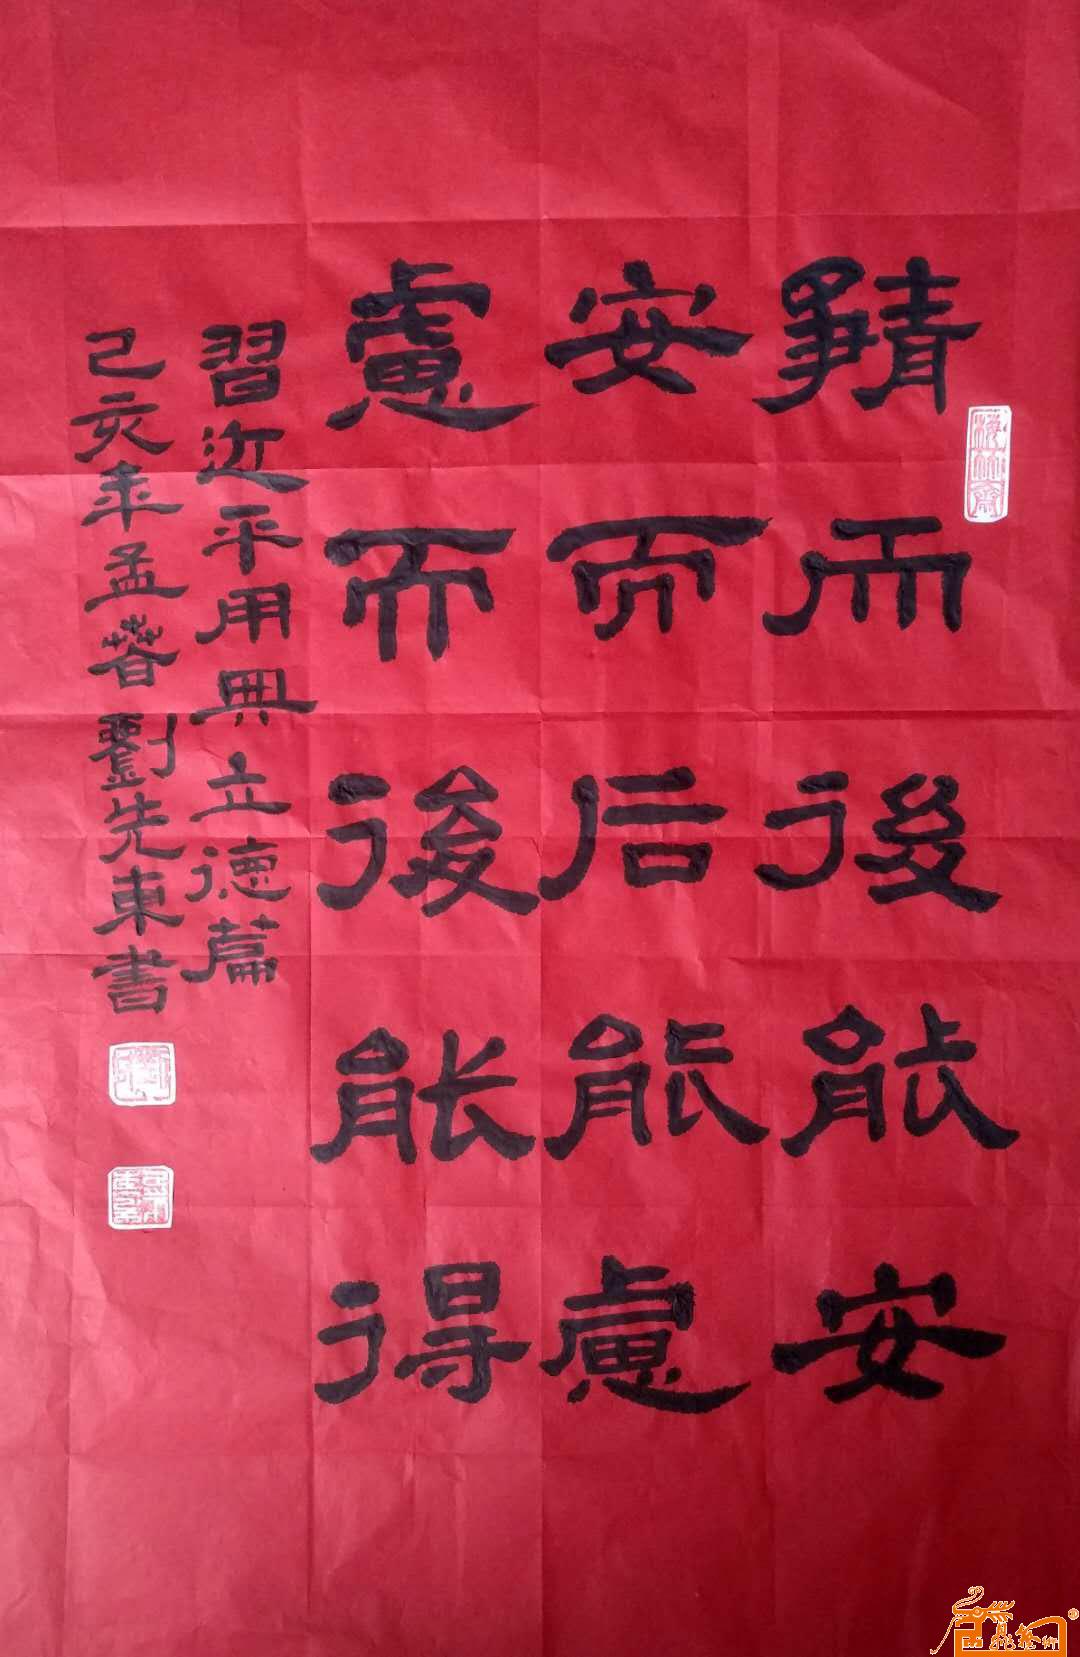 靜而後能安
安而后能慮
慮而後能得
習近平用典立德篇
己亥年孟春劉先東書